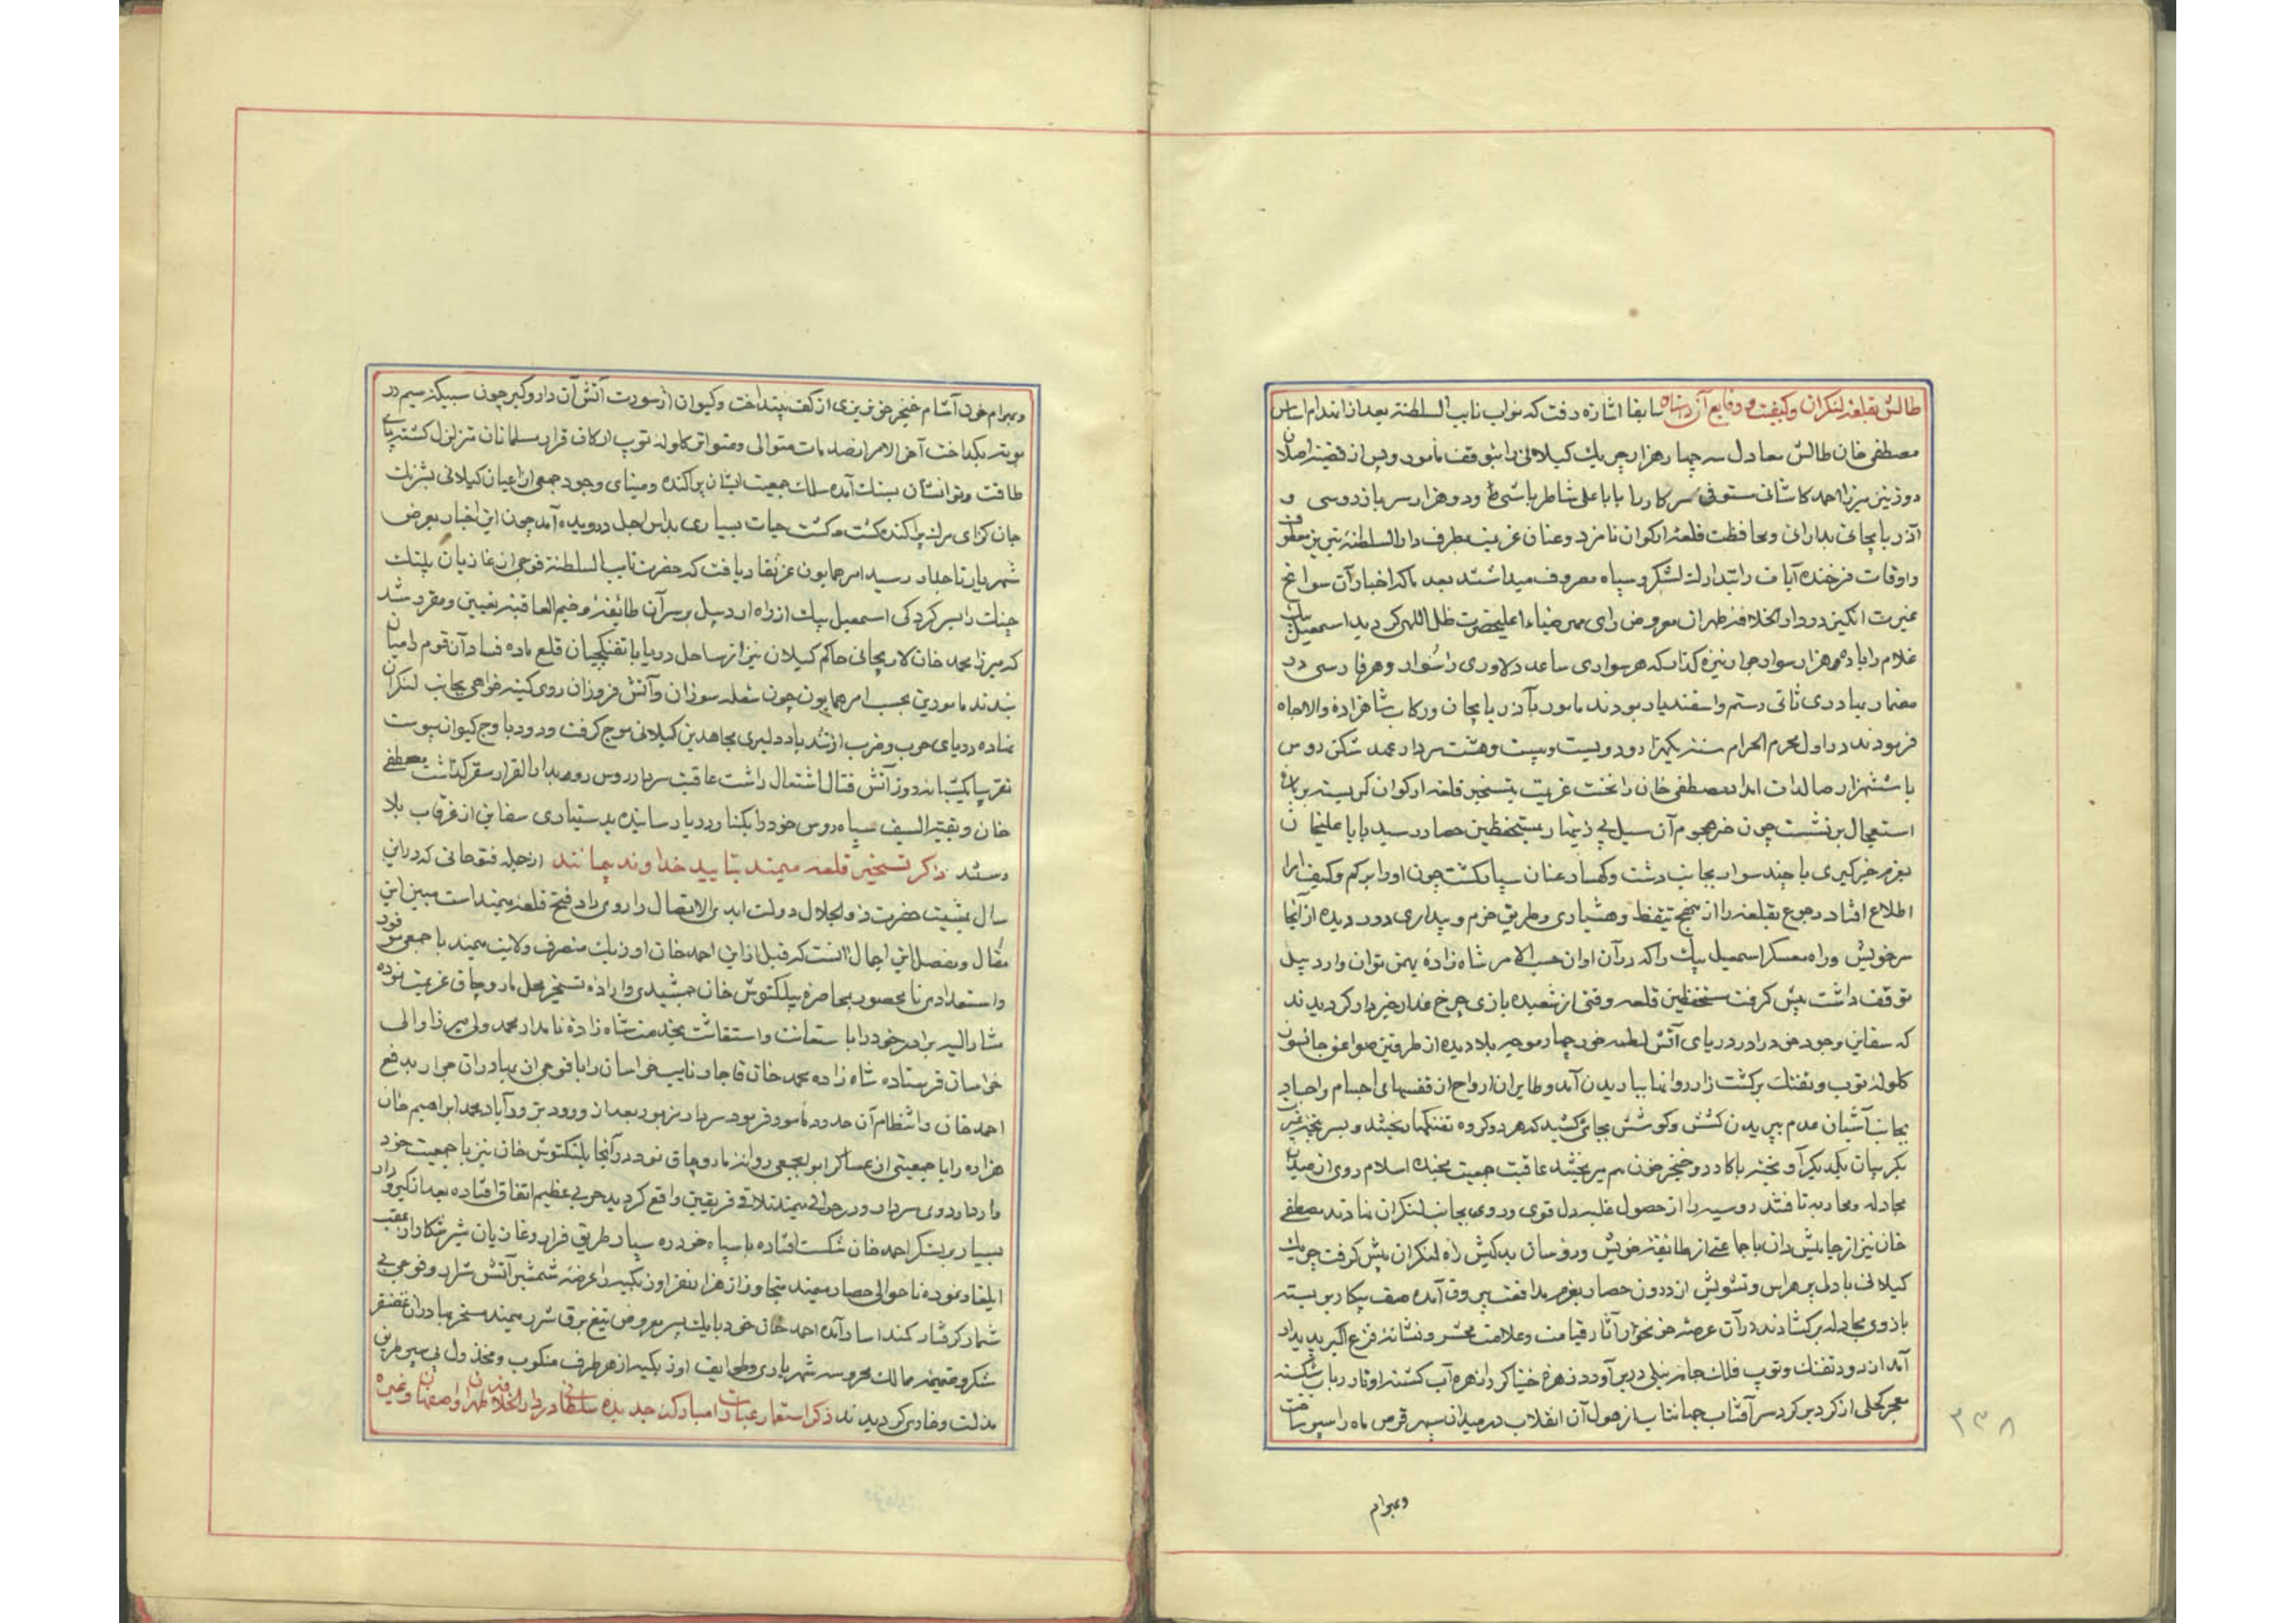 طالش بقلعهٔ لنکران و کیفیت وقایع آن سابقا اشاره رفت که نواب نایب السلطنه بعد از انهدام اساس
مصطفی خان طالش معادل سه چهار هزار چریک کیلانی را بتوقف مامور و پس از قضیهٔ اصلان
دوز نیز میرزا احمد کاشانی مستوفی سرکار را با باباعلی شاطرباشی و دو هزار سرباز روسی و
آذربایجانی بدارائی و محافظت قلعهٔ ارکوان نامزد و عنان عزیمت بطرف دارالسلطنهٔ تبریز معطوف
و اوقات فرخنده آیات را بتدارک لشکر و سپاه مصروف میداشتند بعد ما که اخبار آن سوانح
غیرت انکیز در دارالخلافهٔ طهران معروض رای مهر ضیاء اعلیحضرت ظل اللهی کردید اسمعیل بیک
غلام را با ده هزار سوار جرار نیزه کذار که هر سواری ساعد دلاوری را سوار و هر فارسی در
مضمار بهادری ثانی رستم و اسفندیار بودند مامور بآذربایجان و رکاب شاهزادهٔ والاجاه
فرمودند در اول محرم الحرام سنه یکهزار و دویست و بیست و هشت سردار عهد شکن روس
با ششهزار صالدات امداد مصطفی خان را بخت عزیمت بتسخیر قلعه ارکوان کر بسته بر باره
استعجال برنشست چون خبر هجوم آن سیل بی زینهار بمستحفظین حصار رسید باباعلیخان
بعزم خبرکیری با چند سوار بجانب دشت و کهسار عنان سپار کشت چون او را بر کم و کیف ابرا
اطلاع افتاد رجوع بقلعه را از منهج تیقظ و هشیاری و طریق حزم و بیداری دور دیده از آنجا
سر خویش و راه معسکر اسمعیل بیک را که در آن اوان حسب الامر شاه زادهٔ بهمن توان وارد بیل
توقف داشت پیش کرفت مستحفظین قلعه وقتی از شعبده بازی چرخ غدار خبردار کردیدند
که سفاین وجود خود را در دریای آتش لطمه خور چهار موجه بلا دیده از طرفین صواعق جانسوز
کلوله توب و تفنک بر کشت زار روانها باریدن آمد و طایران ارواح از قفسهای اجسام و اجساد
بجانب آشیان عدم پریدن کشش و کوشش بجائی کشید که هر دو کروه تفنکها ریختند و بسر پنجه غیرت
بکریبان یکدیکر آویخته با کارد و خنجر خون هم میریختند عاقبت جمعیت بجنده اسلام روی از میدان
مجادله و محاربه تافتند روسیه را از حصول غلبه دل قوی و روی بجانب لنکران نهادند مصطفی
خان نیز از جامیش وان با جماعتی از طایفهٔ خویش و روسان بدکیش راه لنکران پیش کرفت چریک
کیلانی با دل پر هراس و تشویش از درون حصار بعزم مدافعت بیرون آمده صف پیکار بر بسته
بازوی مجادله برکشادند در آن عرصهٔ خونخوار آثار قیامت و علامت محشر و نشانهٔ فزع اکبر پدیدار
آمد از دود تفنک و توپ فلک جامه نیلی در بر آورد زهرهٔ خنیاکر را زهره آب کشته اوتار رباب شکسته
معجر کحلی از کرد بر کرد سر آفتاب جهانتاب از هول آن انقلاب در میدان سپهر قرص ماه را سپر ساخت
وبهرام
۳۳۸
وبهرام خون آشام خنجر خون ریزی از کف بینداخت و کیوان از سورت آتش آن دار و کیر چون سبیکه سیم در
بوته بکداخت آخر الامر از صدمات متوالی و متواتر کلوله توپ ارکان قرار مسلمانان متزلزل کشته پای
طاقت و توانشان بسنک آمده سلک جمعیت ایشان پراکنده و مینای وجود جمعی از اعیان کیلانی بشرنک
جان کزای مرک پراکنده کشت و کشت حیات بسیاری بداس اجل درویده آمد چون این اخبار بعرض
شهریار تاجدار رسید امر همایون عز نفاذ یافت که حضرت نایب السلطنة فوجی از غازیان پلنک
چنک را بسرکردکی اسمعیل بیک از راه اردبیل بر سر آن طائفهٔ وخیم العاقبه تعیین و مقرر شد
که میرزا محمد خان لاریجانی حاکم کیلان نیز از ساحل دریا با تفنکچیان قلع ماده فساد آن قوم را میان
بندند مامورین بحسب امر همایون چون شعله سوزان و آتش فروزان روی کینه خواهی بجانب لنکران
نهاده دریای حرب و ضرب از تند باد دلیری مجاهدین کیلانی موج کرفت و رود باوج کیوان پیوست
تقریبا یکشبانه روز آتش قتال اشتعال داشت عاقبت سردار روس رو بدار القرار سقر کذاشت مصطفی
خان و بقیة السیف سپاه روس خود را بکنار دریا رسانیده بدستیاری سفاین از غرقاب بلا
رستند ذکر تسخیر قلعه میمند بتایید خداوند بیمانند از جمله فتوحاتی که در این
سال بمشیت حضرت ذو الجلال دولت ابدی الاتصال را روی داد فتح قلعهٔ میمند است مبین این
مقال و مفصل این اجمال آنست که قبل از این احمد خان اوزبک متصرف ولایت میمند با جمعی موفور
و استعدادی نامحصور بمحاصرهٔ بیلکتوش خان جمشیدی و ارادهٔ تسخیر محل ماروچاق عزیمت نموده
مشار الیه برادر خود را با ستعانت و استغاثت بخدمت شاه زادهٔ نامدار محمد ولی میرزا والی
خراسان فرستاده شاه زاده محمد خان قاجار نایب خراسان را با فوجی از بهادران جرار بدفع
احمد خان و انتظام آن حدود مامور فرمود سردار مزبور بعد از ورود بتروراباد محمد ابراهیم خان
هزاره را با جمعیتی از عساکر ابوابجمعی روانه ماروچاق نمود در آنجا یلنکتوش خان نیز با جمعیت خود
وارد اردوی سردار و در حوالی میمند تلاقی فریقین واقع کردید حربی عظیم اتفاق افتاده بعد از کیر و دار
بسیار بر لشکر احمد خان شکست افتاده با سپاه خود ره سپار طریق فرار و غازیان شیر شکار از عقب
ایلغار نموده تا حوالی حصار میمند متجاوز از هزار نفر اوزبکیه را عرضهٔ شمشیر آتش شرار و فوجی بی
شمار کرفتار کمند اسار آمده احمد خان خود با یک پسر معروض تیغ برق شرر میمند مسخر بهادران غضنفر
شکر و ضمیمه ممالک محروسه شهریاری و طوایف اوزبکیه از هر طرف منکوب و مخذول پی سپر طریق
مذلت و خاری کردیدند ذکر استعمار عمارات مبارکهٔ جدیده سلطانی در دار الخلافه طهران و اصفهان و غیره